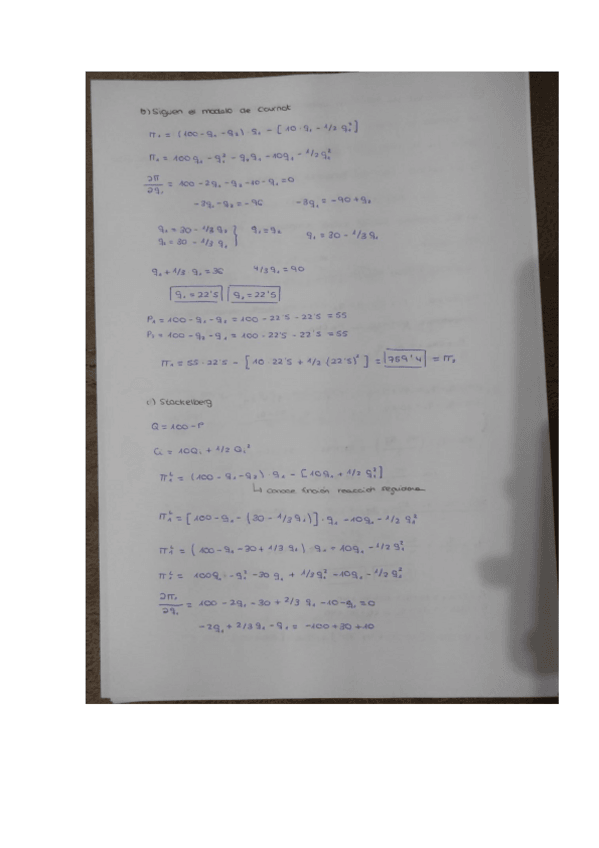 b) Siguen el modelo de Cournot
π₁ = (100 - q₁ - q₂) · q₁ - [10 · q₁ - 1/2 q₁²]
π₁ = 100 q₁ - q₁² - q₂q₁ - 10q₁ - 1/2 q₁²
∂π/∂q₁ = 100 - 2q₁ - q₂ - 10 - q₁ = 0
-3q₁ - q₂ = -90 -3q₁ = -90 + q₂
q₁ = 30 - 1/3 q₂ } q₁ = q₂ q₁ = 30 - 1/3 q₁
q₂ = 30 - 1/3 q₁
q₁ + 1/3 q₁ = 30 4/3 q₁ = 90
q₁ = 22'5 q₂ = 22'5
P₁ = 100 - q₁ - q₂ = 100 - 22'5 - 22'5 = 55
P₂ = 100 - q₂ - q₁ = 100 - 22'5 - 22'5 = 55
π₁ = 55 · 22'5 - [10 · 22'5 + 1/2 · (22'5)²] = 759'4 = π₂
c) Stackelberg
Q = 100 - P
Cᵢ = 10Qᵢ + 1/2 Qᵢ²
π₁ᴸ = (100 - q₁ - q₂) q₁ - [10q₁ + 1/2 q₁²]
↳ conoce función reacción seguidora
π₁ᴸ = [100 - q₁ - (30 - 1/3 q₁)] · q₁ - 10q₁ - 1/2 q₁²
π₁ᴸ = (100 - q₁ - 30 + 1/3 q₁) q₁ - 10q₁ - 1/2 q₁²
π₁ᴸ = 100q₁ - q₁² - 30 q₁ + 1/3 q₁² - 10q₁ - 1/2 q₁²
∂π₁/∂q₁ = 100 - 2q₁ - 30 + 2/3 q₁ - 10 - q₁ = 0
-2q₁ + 2/3 q₁ - q₁ = -100 + 30 + 10